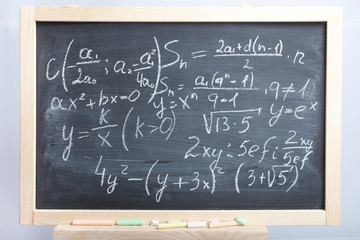 C(a₁/2a₀ ; a₂ - a²/4a₀) Sₙ = (2a₁+d(n-1))/2 · n
ax²+bx=0 Sₙ = a₁(qⁿ-1)/(q-1), q≠1
y=xⁿ √(13·5) y=eˣ
y=K/x (k>0)
2xy=5ef; 2xy/5ef
4y² - (y+3x)² (3+√5)